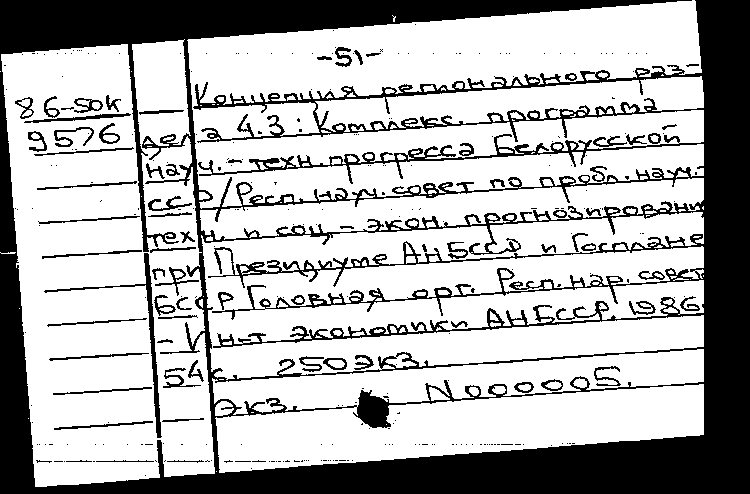 -51-
86-SOK
9576
Концепция регионального раз-
дела 4.3: Комплекс. программа
науч.-техн. прогресса Белорусской
ССР/Респ. науч. совет по пробл. науч.-
техн. и соц.-экон. прогнозировани
при Президиуме АН БССР и Госплане
БССР, Головная орг. Респ. нар. совета
- Ин-т экономики АН БССР. 1986.
54 с. 250 экз.
Экз. N000005.